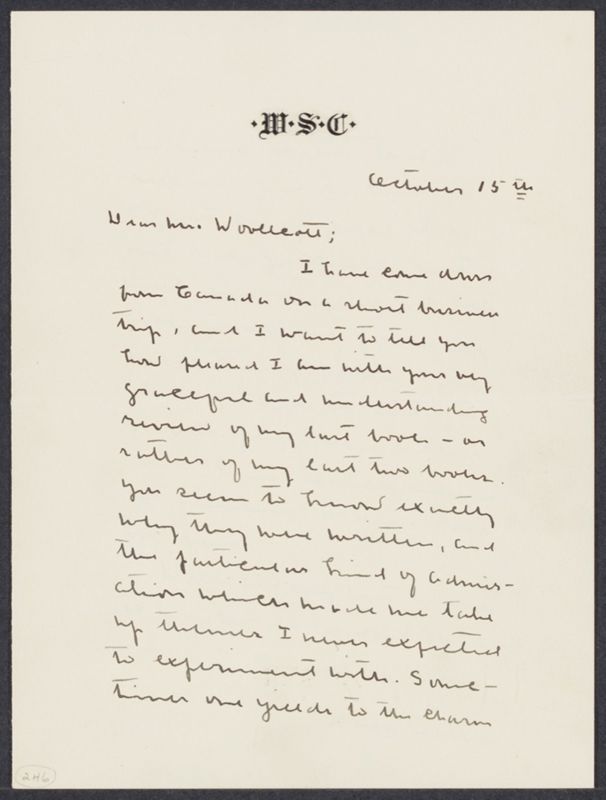 ·W·S·C·
October 15th
Dear Mr. Woollcott;
I have come down
from Canada on a short business
trip, and I want to tell you
how pleased I am with your very
graceful and understanding
review of my last book – or
rather of my last two books.
You seem to know exactly
why they were written, and
the particular kind of admir-
ation which made me take
up themes I never expected
to experiment with. Some-
times one yields to the charm
246